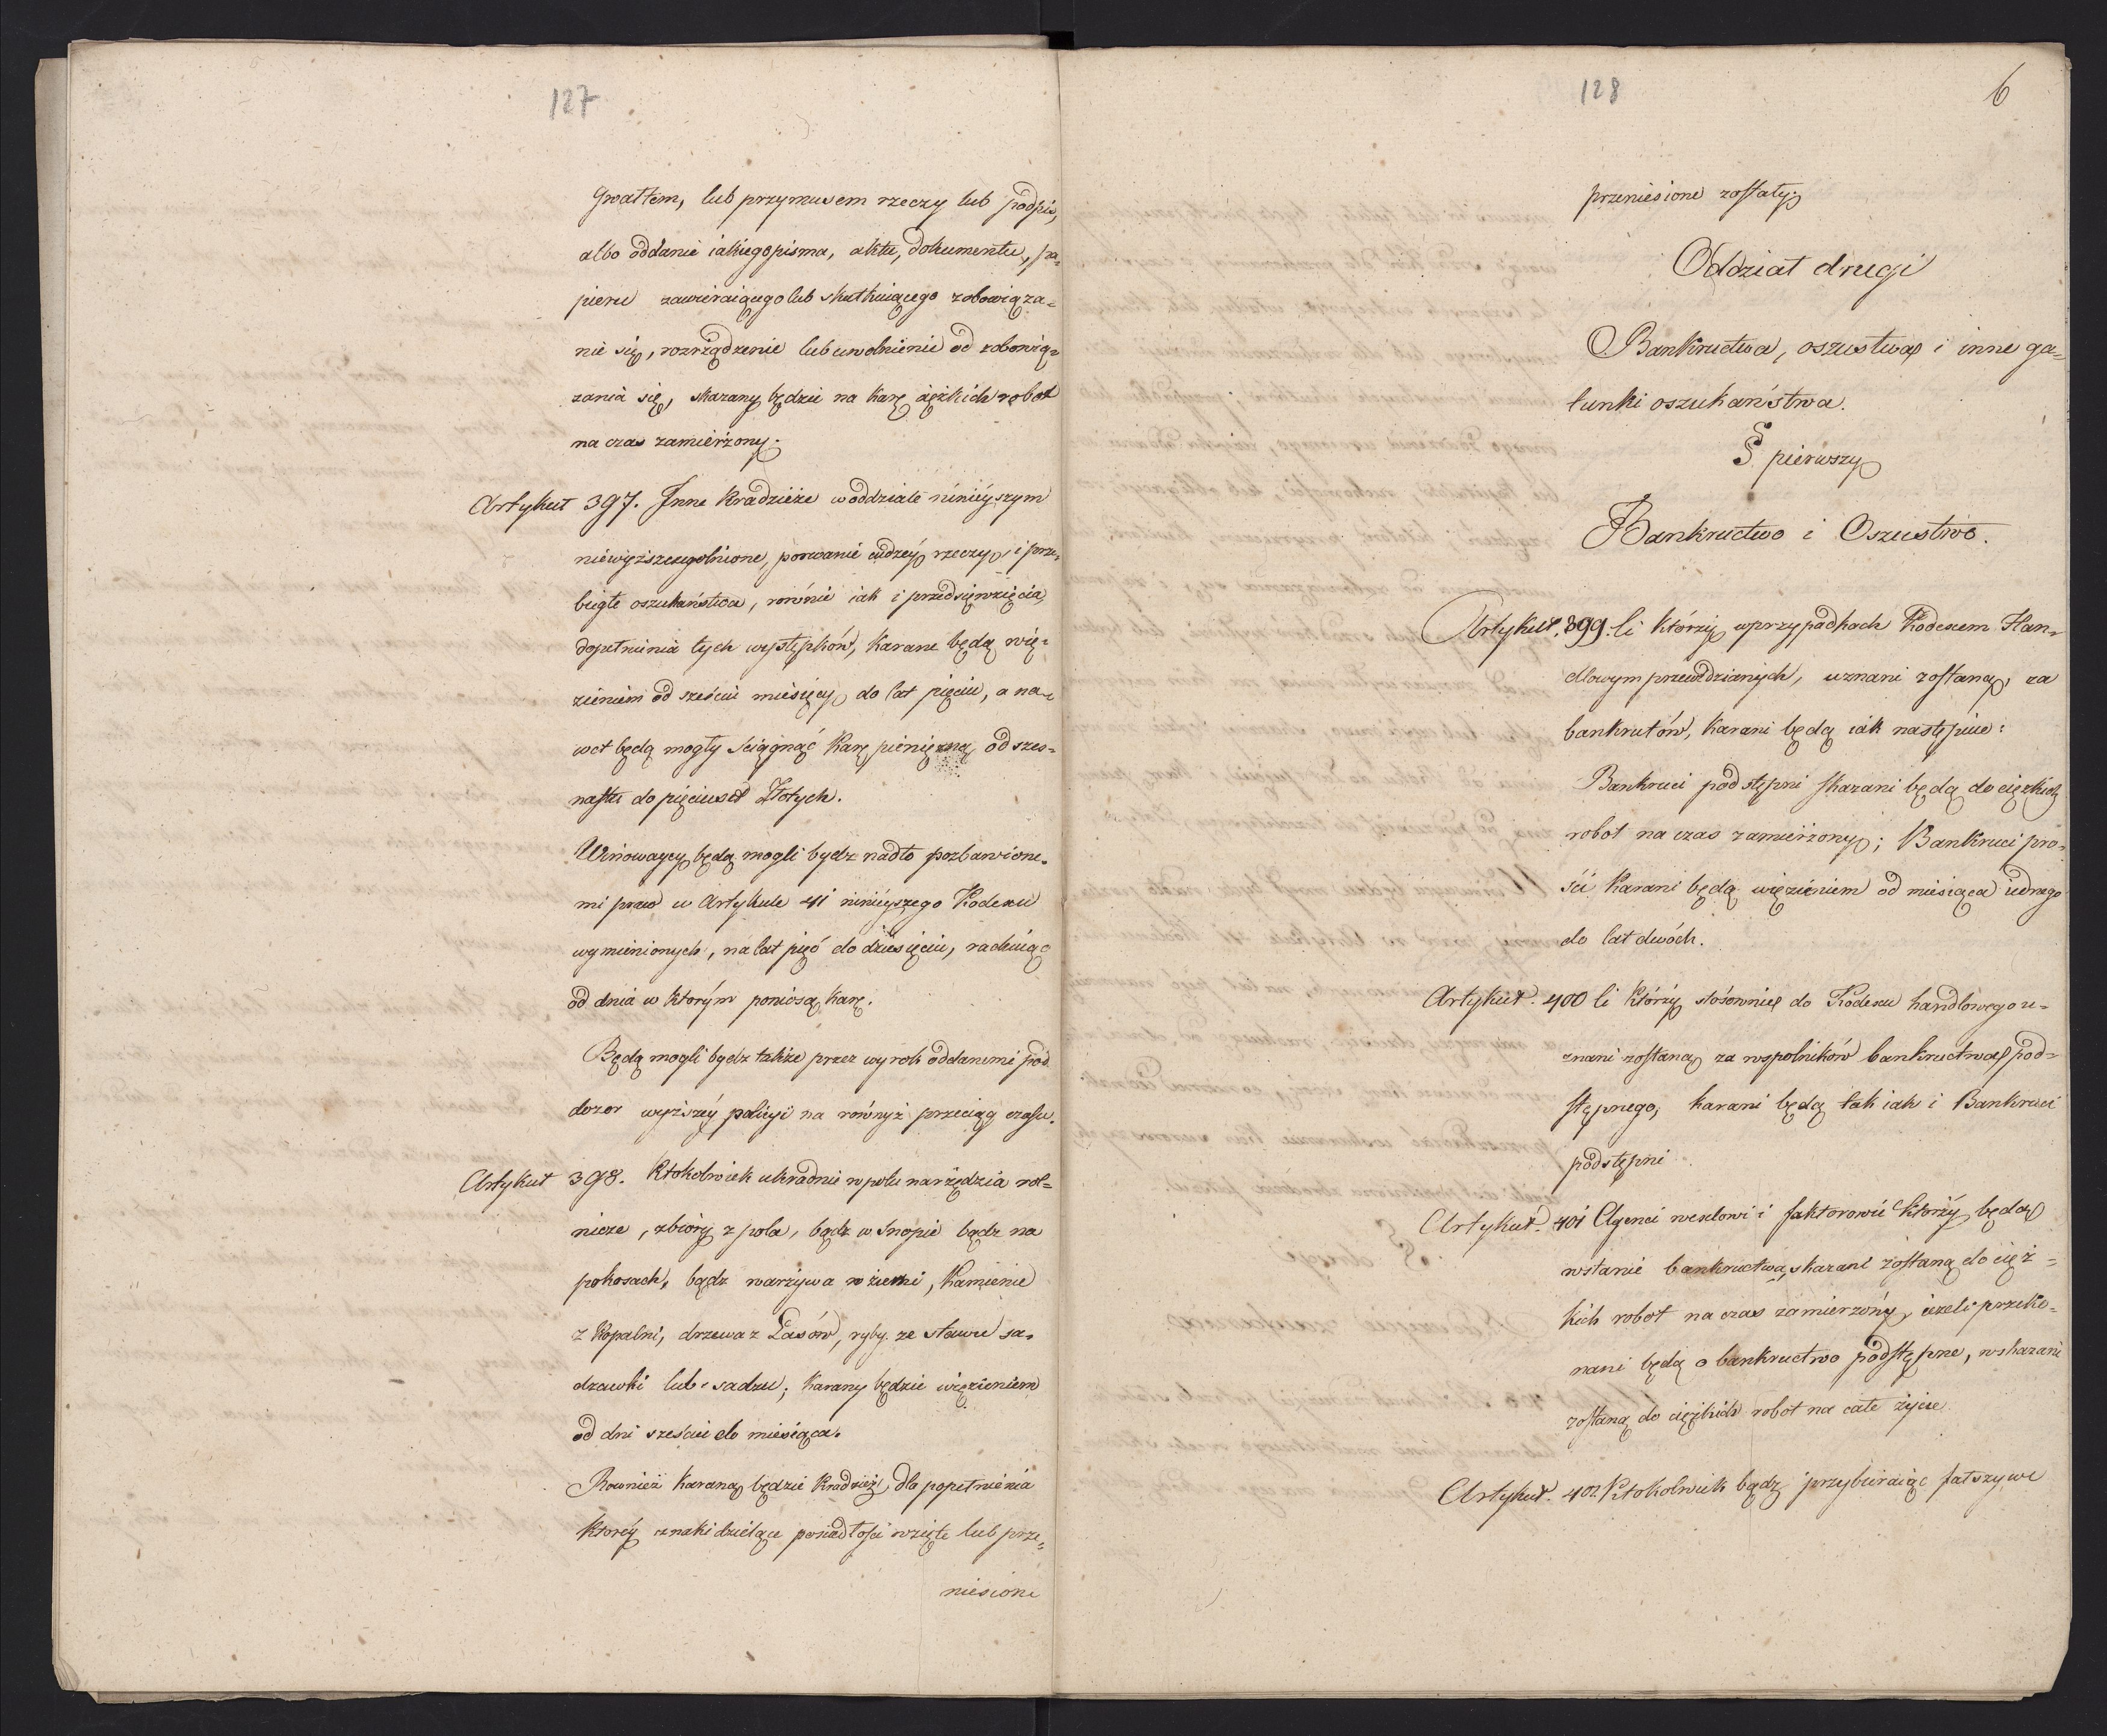 127
gwałtem, lub przymusem rzeczy lub podpis,
albo oddanie iakiego pisma, aktu, dokumentu, pa-
pieru zawieraiącego lub skutkuiącego zobowiąza-
nie się, rozrządzenie lub uwolnienie od zobowią-
zania się, skazany będzie na karę ciężkich robot
na czas zamierzony.
Artykuł 397. Inne kradzieże w oddziale ninieyszym
niewyszczegolnione, porwanie cudzey rzeczy, i prze-
biegłe oszukaństwa, rownie iak i przedsięwzięcia
dopełnienia tych występków, karane będą wię-
zieniem od sześciu miesięcy do lat pięciu, a na-
wet będą mogły sciągnąć karę pieniężną od szes-
nastu do pięciuset Złotych.
Winowaycy będą mogli bydz nadto pozbawione-
mi praw w Artykule 41 ninieyszego Kodexu
wymienionych, na lat pięć do dziesięciu, rachuiąc
od dnia w którym poniosą karę.
Będą mogli bydz także przez wyrok oddanemi pod
dozor wyższéy policyi na rownyż przeciąg czasu.
Artykuł 398. Ktokolwiek ukradnie w polu narzędzia rol-
nicze, zbiory z pola, bądz w snopie bądz na
pokosach, bądz warzywa w ziemi, kamienie
z kopalni, drzewa z Lasów, ryby ze stawu sa-
dzawki lub sadzu; karany będzie więzieniem
od dni sześciu do miesiąca.
Rownież karaną będzie kradzież, dla popełnienia
którey znaki dzielące posiadłości wzięte lub prze-
niesione
128
6
przeniesione zostały.
Oddział drugi
Bankructwa, oszustwa i inne ga-
tunki oszukaństwa.
§ pierwszy
Bankructwo i Oszustwo.
Artykuł. 399. Ci którzy w przypadkach Kodexem Han-
dlowym przewidzianych, uznani zostaną, za
bankrutów, karani będą iak następuie:
Bankruci podstępni skazani będą do ciężkich
robot na czas zamierzony; Bankruci pro-
ści karani będą więzieniem od miesiąca iednego
do lat dwóch.
Artykuł. 400 Ci którzy stosownie do Kodexu handlowego u-
znani zostaną za wspolników bankructwa pod-
stępnego, karani będą tak iak i Bankruci
podstępni.
Artykuł. 401 Agenci wexlowi i faktorowie którzy będą
w stanie bankructwa, skazani zostaną do cięż-
kich robot na czas zamierzony, ieżeli przeko-
nani będą o bankructwo podstępne, wskazani
zostaną do ciężkich robot na całe życie
Artykuł. 402. Ktokolwiek bądz przybieraiąc fałszywe